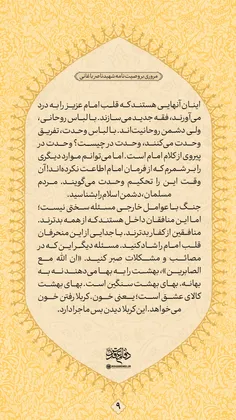 مروری بر وصیت‌نامه شهید ناصر باغانی
اینان آنهایی هستند که قلب امام عزیز را به درد
می‌آورند، فقه جدید می‌سازند. با لباس روحانی،
ولی دشمن روحانیت‌اند. با لباس وحدت، تفریق
وحدت می‌کنند، وحدت در چیست؟ وحدت در
پیروی از کلام امام است. اما می‌توانم موارد دیگری
را بر شمرم که از فرمان امام اطاعت نکرده‌اند! آن
وقت این را تحکیم وحدت می‌گویند. مردم
مسلمان، دشمن اسلام را بشناسید.
جنگ با عوامل خارجی مسئله سختی نیست؛
اما این منافقان داخل هستند که از همه بدترند.
منافقین از کفار بدترند. با جدایی از این منحرفان
قلب امام را شاد کنید. مسئله دیگر این که در
مصائب و مشکلات صبر کنید. «ان الله مع
الصابرین»، بهشت را به بها می‌دهند نه به
بهانه. بهای بهشت سنگین است. بهای بهشت
کالای عشق است؛ یعنی خون. کربلا رفتن خون
می‌خواهد. این کربلا دیدن بس ماجرا دارد.
۹